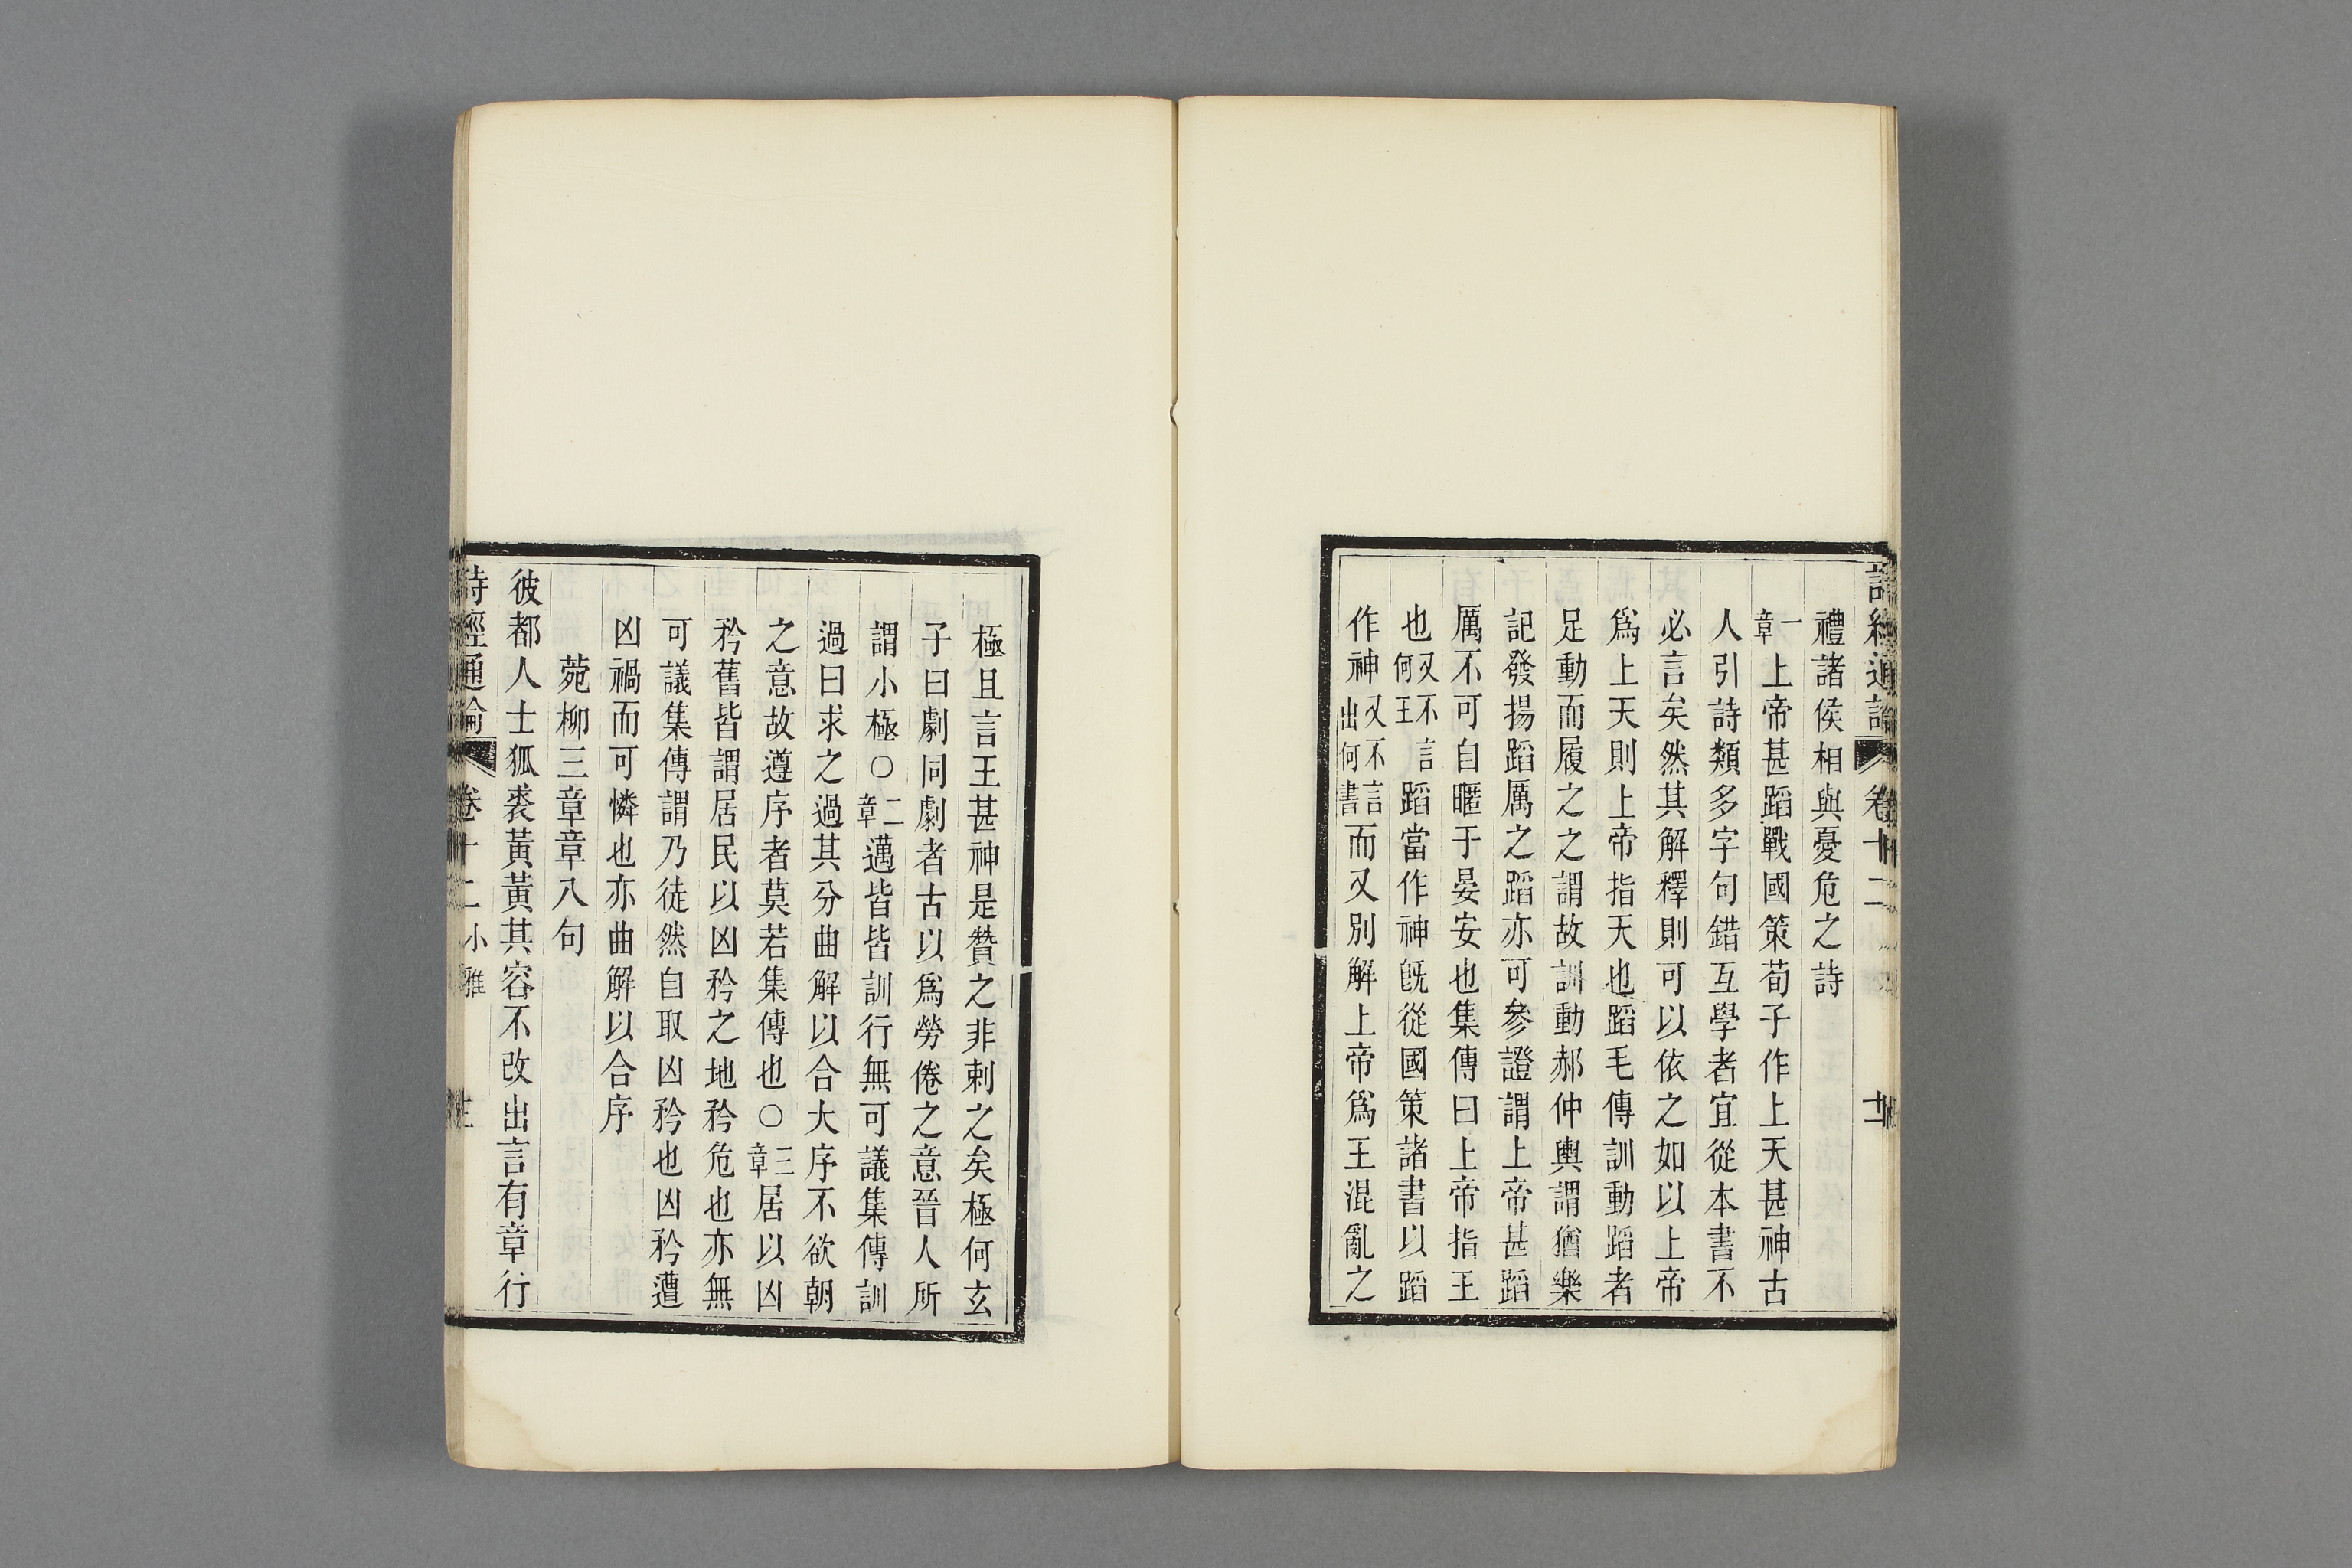 詩經通論 卷十二
禮諸侯相與憂危之詩
一章上帝甚蹈戰國策荀子作上天甚神古
人引詩類多字句錯互學者宜從本書不
必言矣然其解釋則可以依之如以上帝
爲上天則上帝指天也蹈毛傳訓動蹈者
足動而履之之謂故訓動郝仲輿謂猶樂
記發揚蹈厲之蹈亦可參證謂上帝甚蹈
厲不可自暱于晏安也集傳曰上帝指王
也又不言何王蹈當作神旣從國策諸書以蹈
作神又不言出何書而又別解上帝爲王混亂之
極且言王甚神是贊之非刺之矣極何玄
子曰劇同劇者古以爲勞倦之意晉人所
謂小極○二章邁皆皆訓行無可議集傳訓
過曰求之過其分曲解以合大序不欲朝
之意故遵序者莫若集傳也○三章居以凶
矜舊皆謂居民以凶矜之地矜危也亦無
可議集傳謂乃徒然自取凶矜也凶矜遭
凶禍而可憐也亦曲解以合序
菀柳三章章八句
彼都人士狐裘黃黃其容不改出言有章行
詩經通論 卷十二小雅